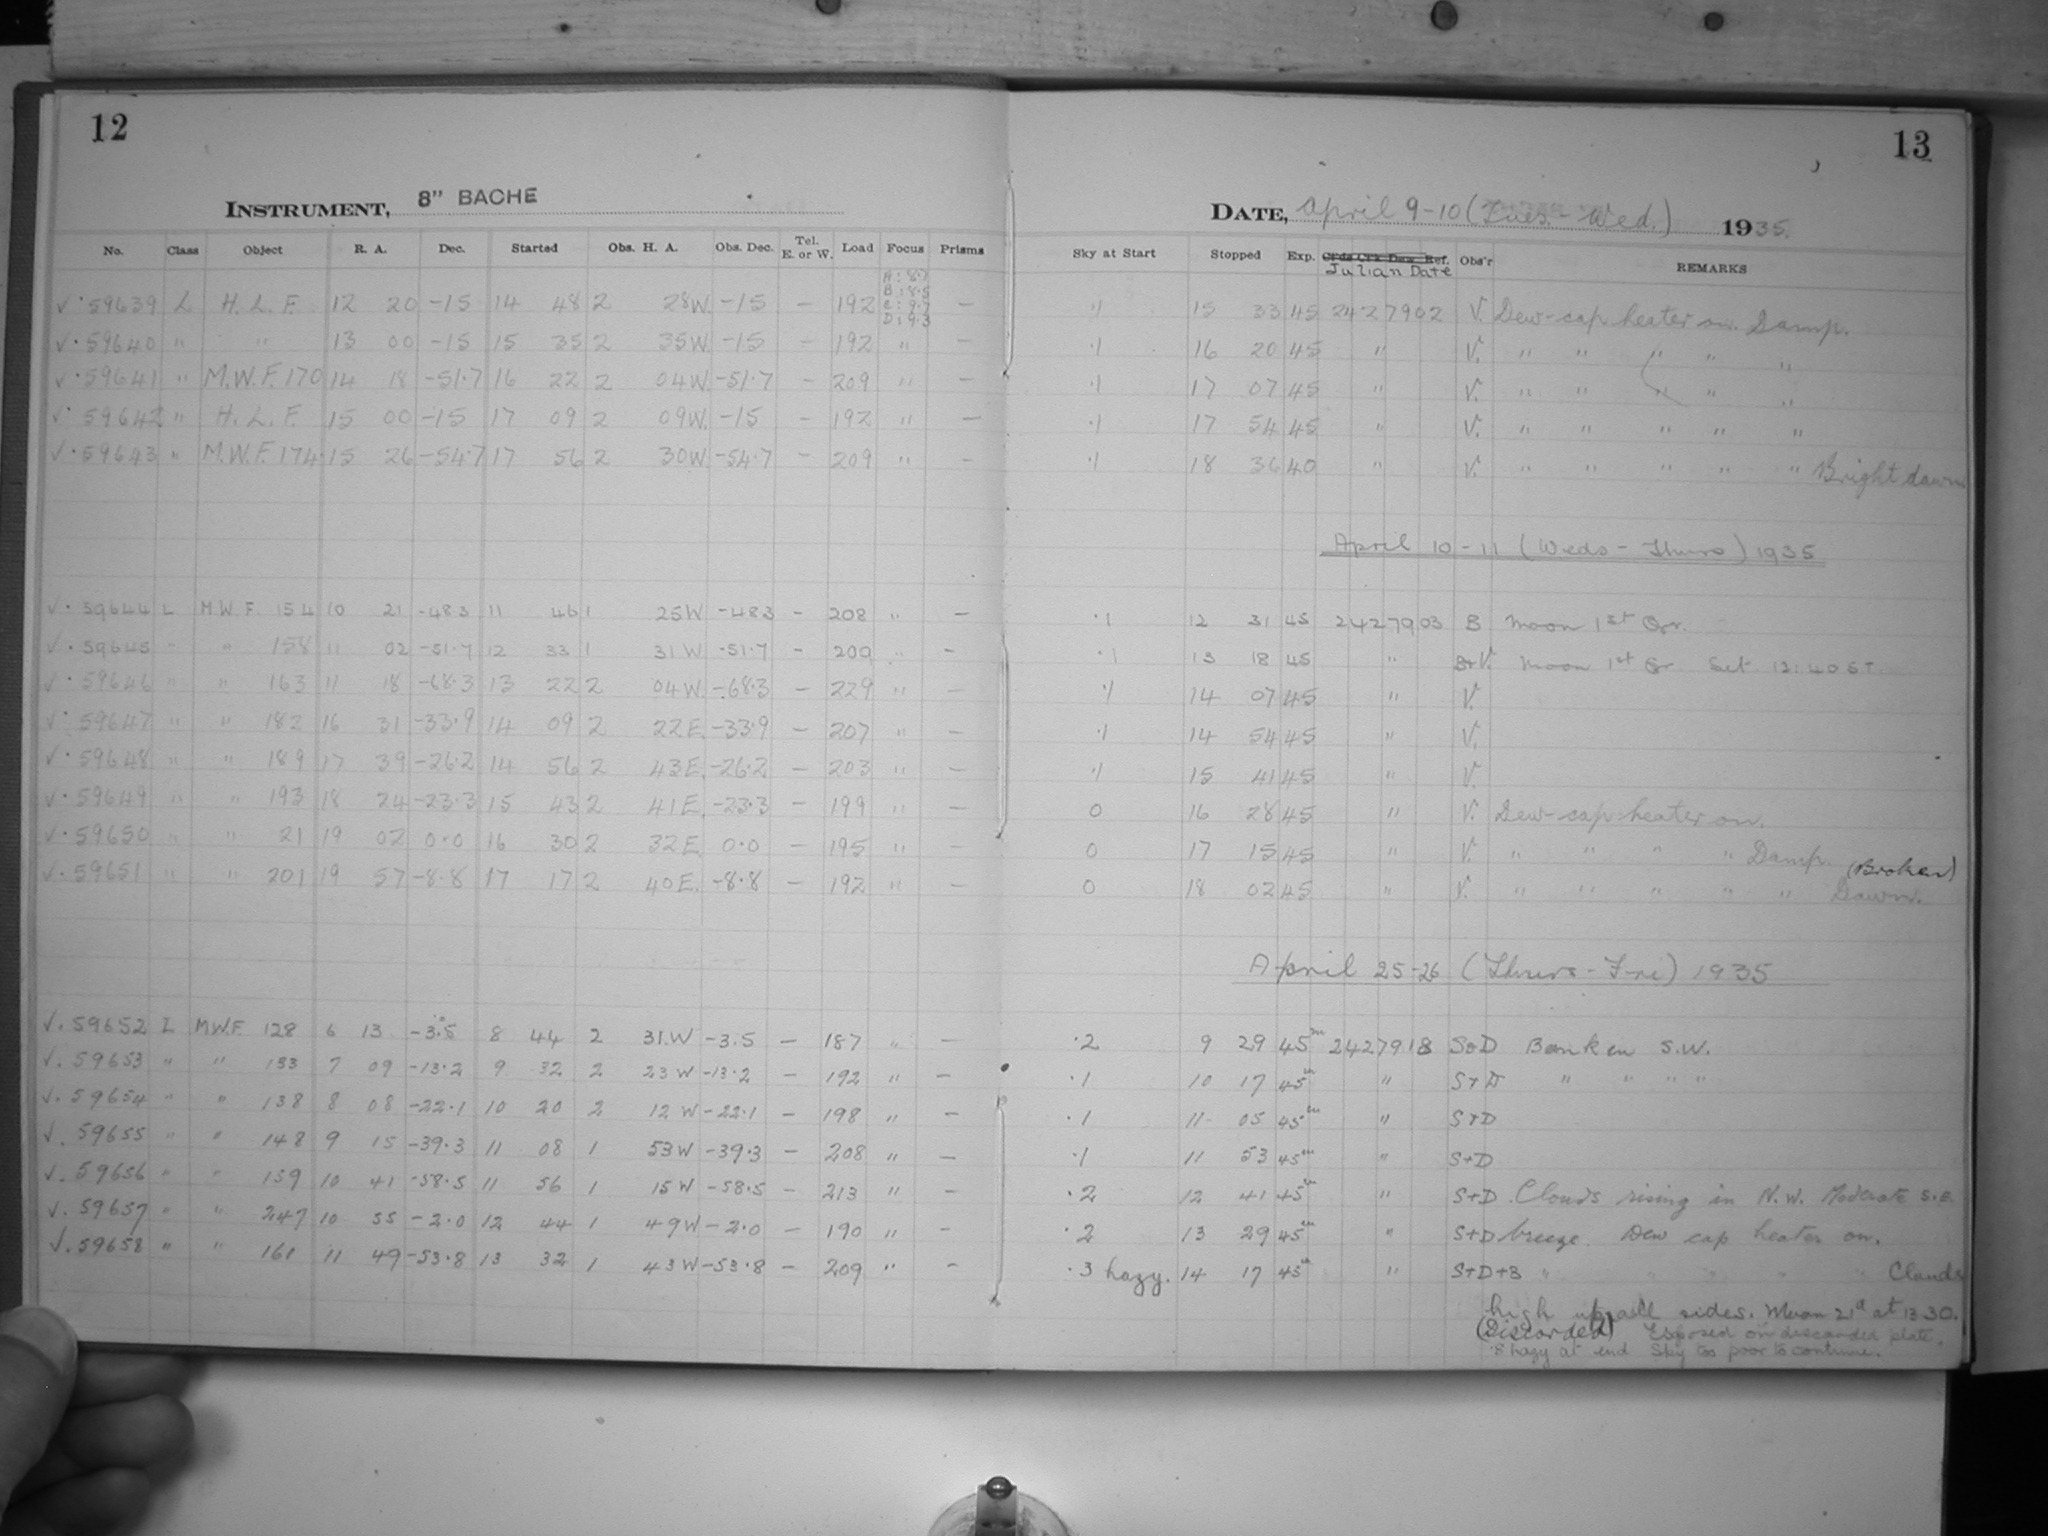 12
INSTRUMENT, 8" BACHE
No. Class Object R. A. Dec. Started Obs. H. A. Obs. Dec. Tel. E. or W. Load Focus Prisms
A: 8.7
B: 8.5
C: 9.7
D: 9.3
√· 59639 L H. L. F. 12 20 -15 14 48 2 28W. -15 192 —
√· 59640 " " 13 00 -15 15 35 2 35W. -15 — 192 " —
√· 59641 " M.W.F. 170 14 18 -51.7 16 22 2 04W. -51.7 — 209 " —
√· 59642 " H. L. F. 15 00 -15 17 09 2 09W. -15 — 192 " —
√· 59643 " M.W.F. 174 15 26 -54.7 17 56 2 30W. -54.7 — 209 " —
√· 59644 L M W F. 154 10 21 -48.3 11 46 1 25W -48.3 — 208 " —
√· 59645 " " 158 11 02 -51.7 12 33 1 31W -51.7 — 209 " —
√· 59646 " " 163 11 18 -68.3 13 22 2 04W. -68.3 — 229 " —
√· 59647 " " 182 16 31 -33.9 14 09 2 22E. -33.9 — 207 " —
√· 59648 " " 189 17 39 -26.2 14 56 2 43E. -26.2 — 203 " —
√· 59649 " " 193 18 24 -23.3 15 43 2 41E. -23.3 — 199 " —
√· 59650 " " 21 19 02 0.0 16 30 2 32E. 0.0 — 195 " —
√· 59651 " " 201 19 57 -8.8 17 17 2 40E. -8.8 — 192 " —
√. 59652 L M.W.F. 128 6 13 -3.5 8 44 2 31.W -3.5 — 187 " —
√. 59653 " " 133 7 09 -13.2 9 32 2 23 W -13.2 — 192 " —
√. 59654 " " 138 8 08 -22.1 10 20 2 12 W -22.1 — 198 " —
√. 59655 " " 148 9 15 -39.3 11 08 1 53W -39.3 — 208 " —
√. 59656 " " 159 10 41 -58.5 11 56 1 15W -58.5 — 213 " —
√. 59657 " " 247 10 55 -2.0 12 44 1 49W -2.0 — 190 " —
√. 59658 " " 161 11 49 -53.8 13 32 1 43W -53.8 — 209 " —
13
DATE, April 9-10 (Tues - Wed.) 1935.
Sky at Start Stopped Exp. Julian Date Obs'r REMARKS
.1 15 33 45 2427902 V. Dew-cap heater on. Damp.
.1 16 20 45 " V. " " " " "
.1 17 07 45 " V. " " " " "
.1 17 54 45 " V. " " " " "
.1 18 36 40 " V. " " " " " Bright dawn
April 10-11 (Weds - Thurs) 1935
.1 12 31 45 2427903 B Moon 1st Qr.
.1 13 18 45 " B+V. Moon 1st Qr Set 12:40 S.T.
.1 14 07 45 " V.
.1 14 54 45 " V.
.1 15 41 45 " V.
0 16 28 45 " V. Dew-cap heater on.
0 17 15 45 " V. " " " " Damp.
0 18 02 45 " V. " " " " " Dawn. (Broken)
April 25-26 (Thurs - Fri) 1935
.2 9 29 45m 2427918 S+D Bank in S.W.
.1 10 17 45m " S+D " " " "
.1 11 05 45m " S+D
.1 11 53 45m " S+D
.2 12 41 45m " S+D Clouds rising in N.W. Moderate S.E.
.2 13 29 45m " S+D breeze. Dew cap heater on.
.3 hazy. 14 17 45m " S+D+B " " " " " Clouds
high up all sides. Moon 21d at 13 30.
(Discarded) Exposed on discarded plate.
.8 hazy at end Sky too poor to continue.